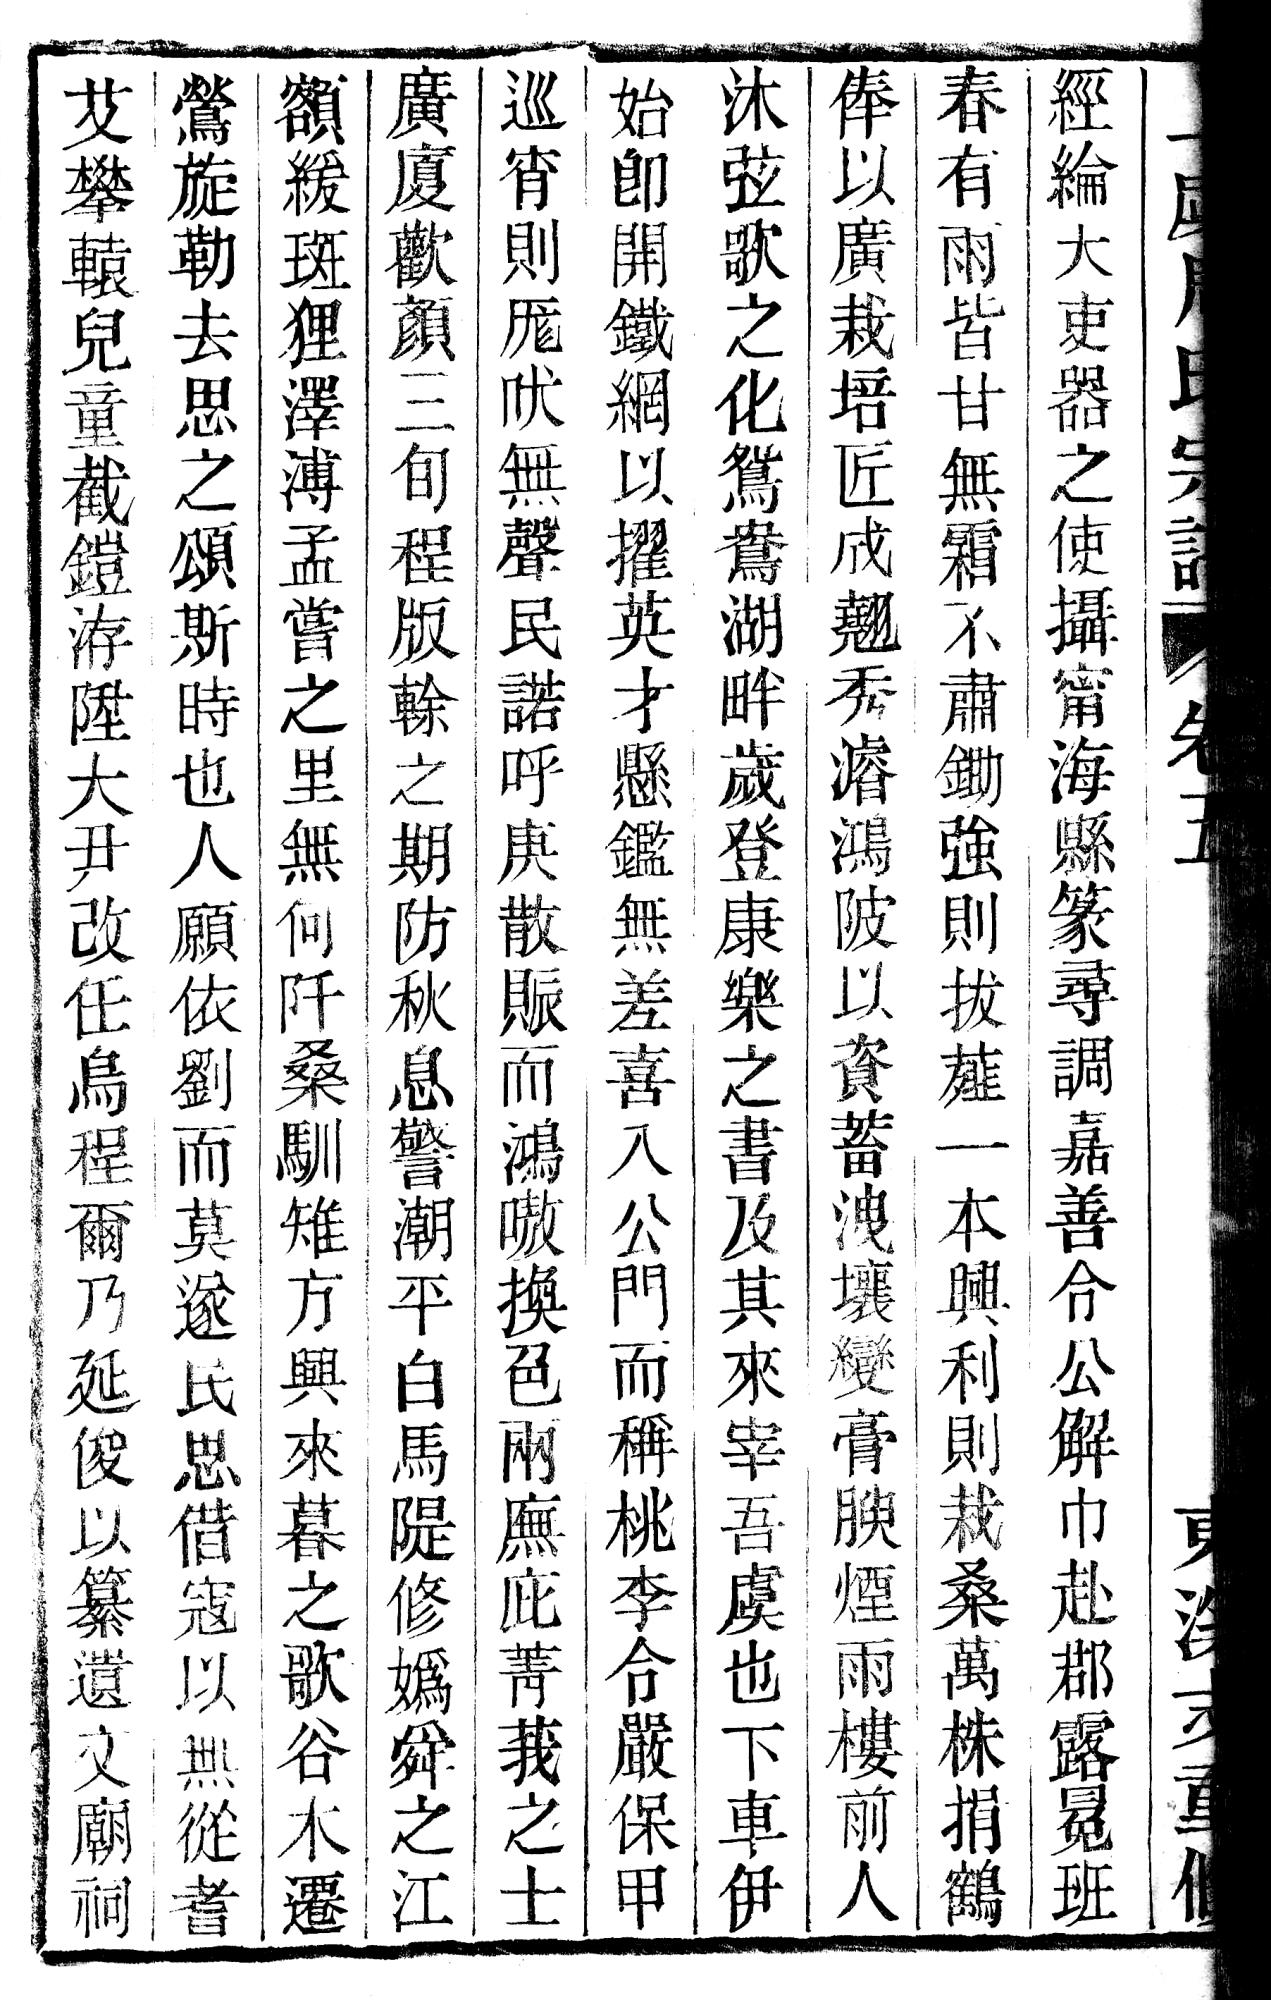 卷五
經綸大吏器之使攝甯海縣篆尋調嘉善令公解巾赴郡露冕班
春有雨皆甘無霜不肅鋤強則拔薤一本興利則栽桑萬株捐鶴
俸以廣栽培匠成翹秀濬鴻陂以資蓄洩壤變膏腴煙雨樓前人
沐弦歌之化鴛鴦湖畔歲登康樂之書及其來宰吾虞也下車伊
始卽開鐵網以擢英才懸鑑無差喜入公門而稱桃李令嚴保甲
巡宵則厖吠無聲民諾呼庚散賑而鴻嗷換色兩廡庇菁莪之士
廣廈歡顏三旬程版榦之期防秋息警潮平白馬隄修嬀舜之江
額緩斑狸澤溥孟嘗之里無何阡桑馴雉方興來暮之歌谷木遷
鶯旋勒去思之頌斯時也人願依劉而莫遂民思借寇以無從耆
艾攀轅兒童截鐙洊陞大尹改任烏程爾乃延俊以纂遺文廟祠